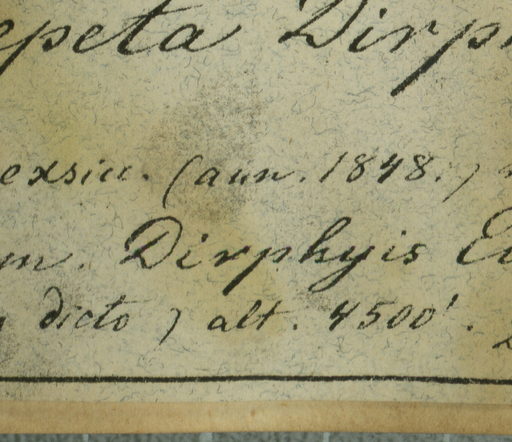 epeta Dirp
exsicc. (aun. 1848.)
m. Dirphyis Eu
dicto) alt. 4500'.